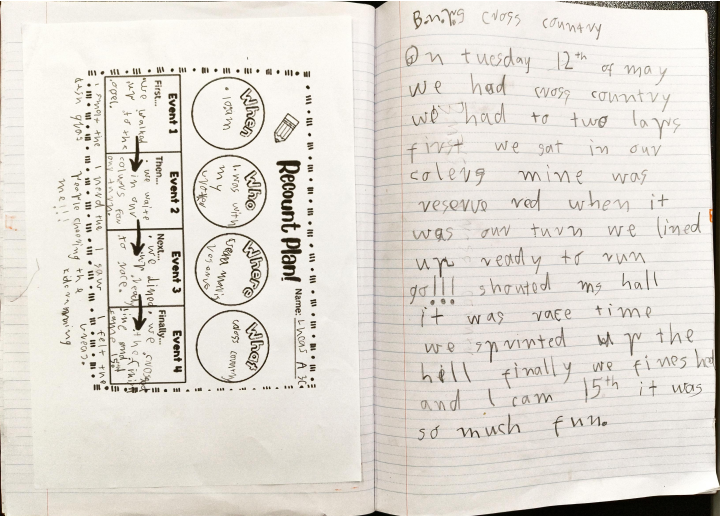 Recount Plan!
Name: Lhcans A 3C
When
10am
Who
I was with
my
Where
What
cross country
Event 1
First...
we walked
up to the
oval.
Event 2
Then...
we waite
in our
colours for
our turn.
Event 3
Next...
we lined
up ready
to race.
Event 4
Finally...
we crosst
the finish
line and I
came 15th
I smelt the
I saw
people cheering
me!!!
I felt the
B.n.p.s cross country
On tuesday 12th of may
we had cross country
we had to two laps
first we sat in our
colerg mine was
reserve red when it
was our turn we lined
up ready to run
go!!! shouted ms hall
it was race time
we sprinted up the
hill finally we fineshed
and I cam 15th it was
so much fun.